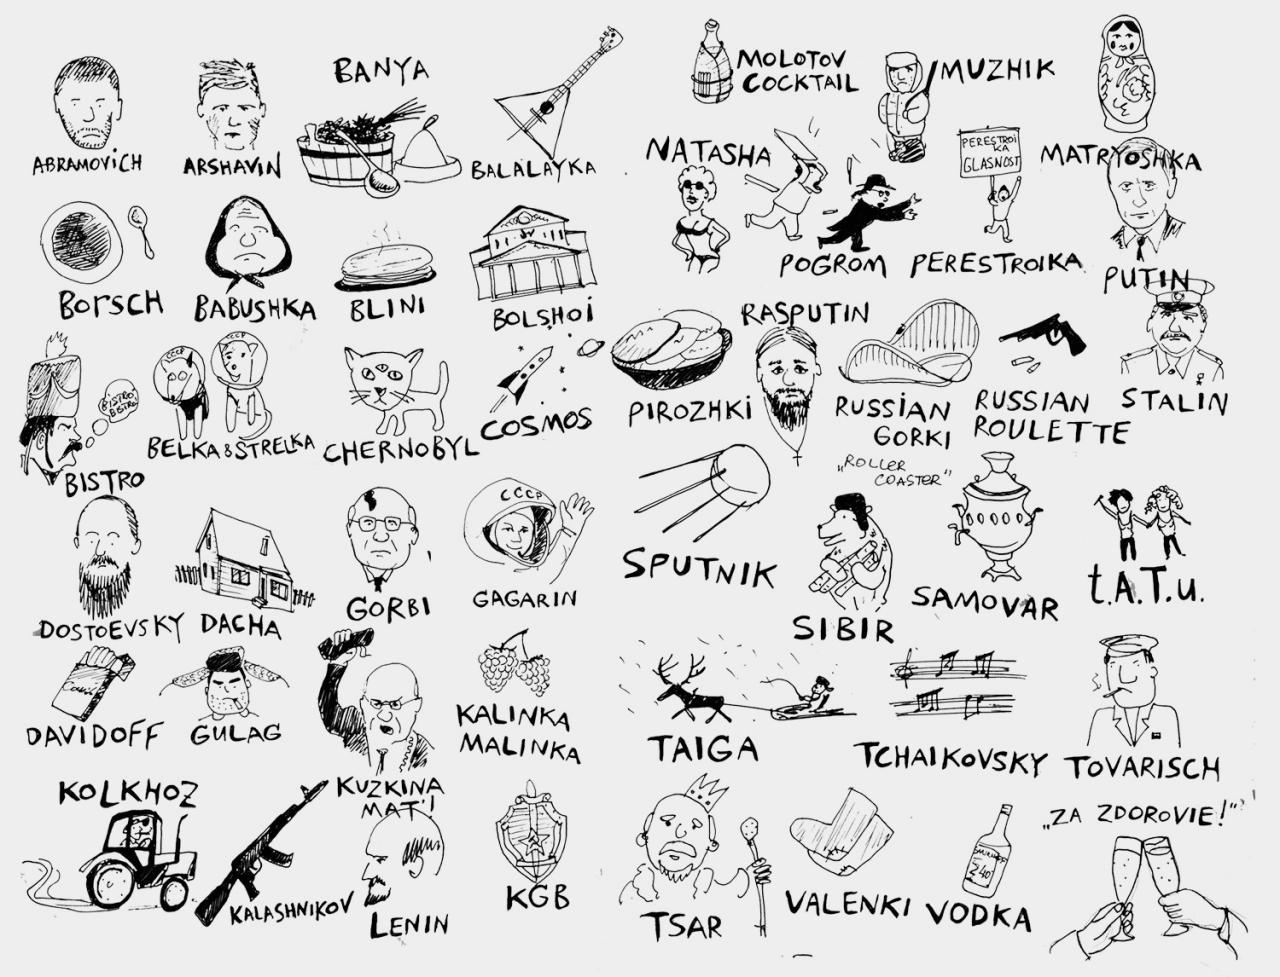 BANYA
ABRAMOVICH
ARSHAVIN
BALALAYKA
BORSCH
BABUSHKA
BLINI
BOLSHOI
BISTRO
BISTRO
BISTRO
CCCP
CCCP
BELKA & STRELKA
CHERNOBYL
COSMOS
DOSTOEVSKY
DACHA
GORBI
CCCP
GAGARIN
DAVIDOFF
GULAG
KUZKINA
MAT'!
KALINKA
MALINKA
KOLKHOZ
KALASHNIKOV
LENIN
KGB
MOLOTOV
COCKTAIL
MUZHIK
MATRYOSHKA
NATASHA
POGROM
PERESTROI
KA
GLASNOST
PERESTROIKA
PUTIN
PIROZHKI
RASPUTIN
RUSSIAN
GORKI
„ROLLER
COASTER"
RUSSIAN
ROULETTE
STALIN
SPUTNIK
SIBIR
SAMOVAR
t.A.T.u.
TAIGA
TCHAIKOVSKY
TOVARISCH
TSAR
VALENKI
VODKA
40°
„ZA ZDOROVIE!"